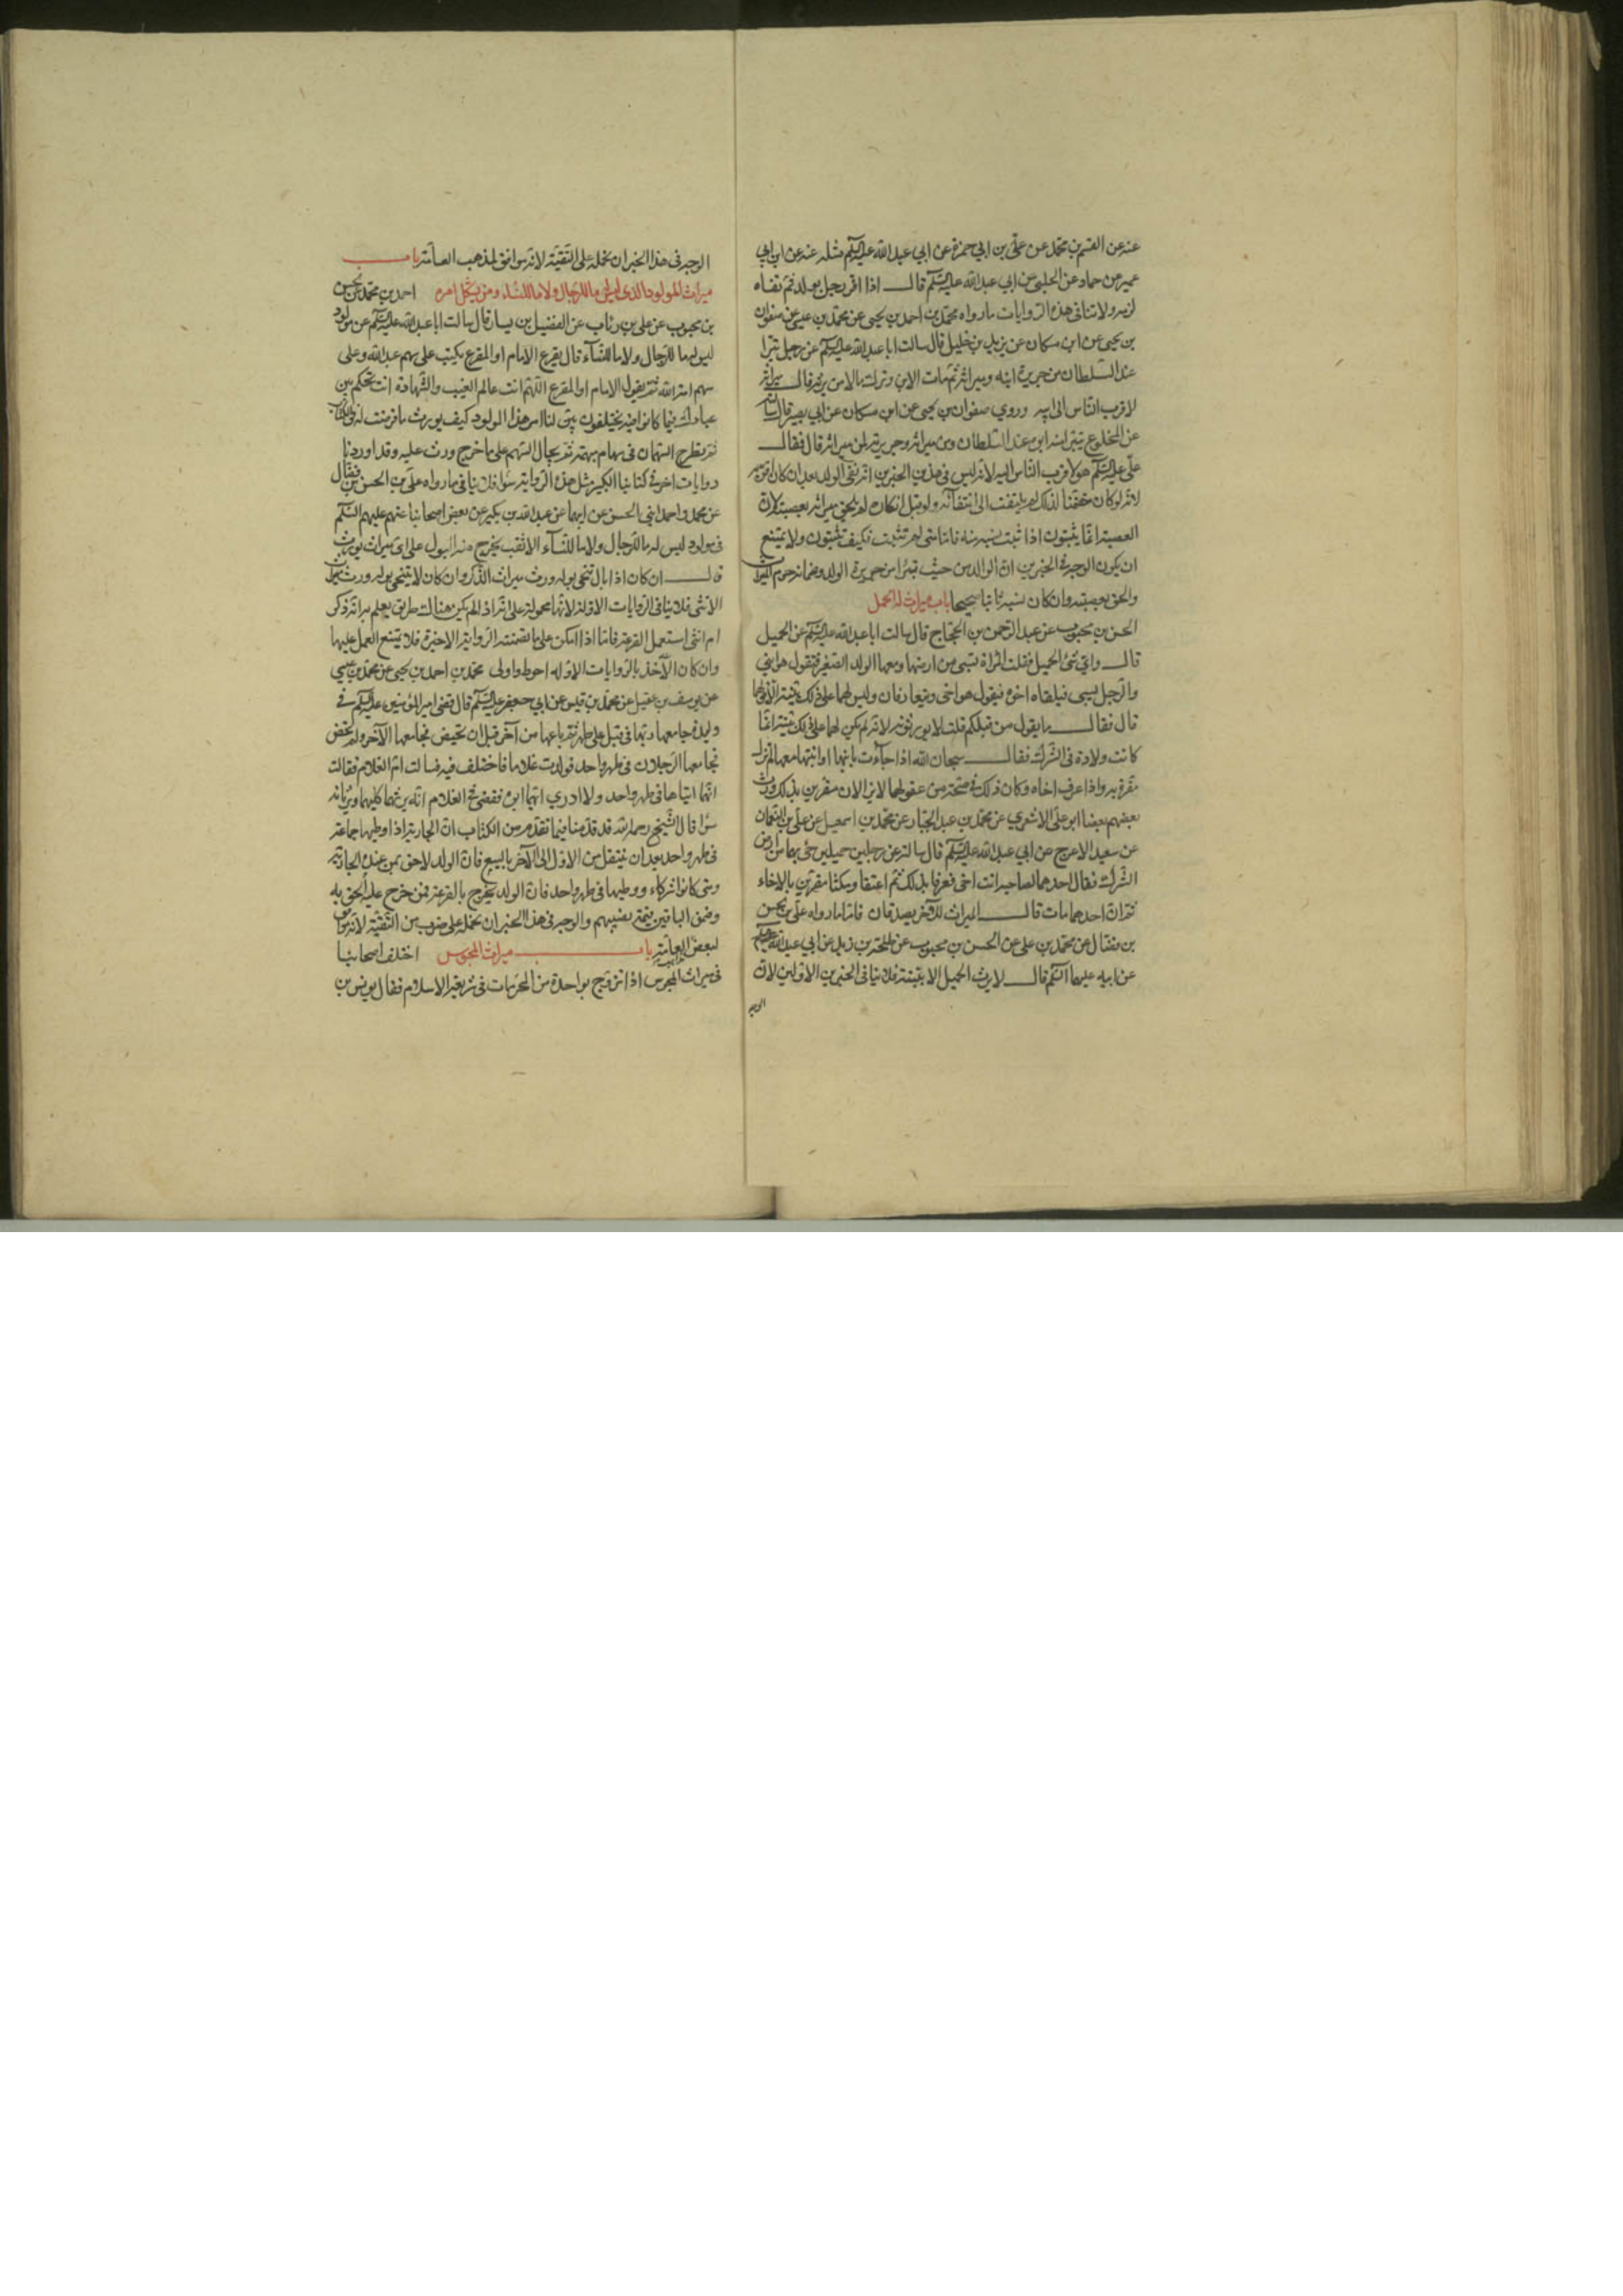 عنه عن القسم بن محمد عن علي بن ابي حمزة عن ابي عبد الله عليه السلم مثله عنه عن ابن ابي
عمير عن حماد عن الحلبي عن ابي عبد الله عليه السلم قال اذا اقر رجل بولد ثم نفاه
لزمه ولا تنافي هذه الروايات ما رواه محمد بن احمد بن يحيى عن محمد بن عيسى عن صفوان
بن يحيى عن ابن مسكان عن يزيد بن خليل قال سالت ابا عبد الله عليه السلم عن رجل تبرا
عند السلطان من جريرة ابنه وميراثه ثم مات الابن وترك مالا من يرثه قال ميراثه
لاقرب الناس الى ابيه وروي صفوان بن يحيى عن ابن مسكان عن ابي بصير قال سالته
عن المخلوع يتبرا منه ابوه عند السلطان ومن ميراثه وجريرته لمن ميراثه قال فقال
علي عليه السلم هو لاقرب الناس اليه لانه ليس في هذين الخبرين انه نفى الولد بعد ان كان اقر به
لانه لو كان حققنا لذلك لم يلتفت الى انتفائه ولو قبل انكاره لم يلحق ميراثه بعصبته لان
العصبة انما يثبتون اذا ثبت نسبه منه فاما متى لم تثبت فكيف تثبتون ولا يمتنع
ان يكون الوجه في الخبرين ان الوالد من حيث تبرا من جريرة الولد وضمانه حرم الميراث
والحق بعصبته وان كان نسبه ثابتا صحيحا باب ميراث الحميل
الحسن بن محبوب عن عبد الرحمن بن الحجاج قال سالت ابا عبد الله عليه السلم عن الحميل
قال واي شئ الحميل فقلت المراة تسبى من ارضها ومعها الولد الصغير فتقول هو ابني
والرجل يسبى فيلقاه اخوه فيقول هو اخي ويتعارفان وليس لهما على ذلك بينة الا قولهما
قال فقال ما يقول من قبلكم قلت لا يورثونه لانه لم يكن لهما على ذلك بينة انما
كانت ولادة في الشرك فقال سبحان الله اذا جاءت بابنها او ابنتها معها لم تزل
مقرة به واذا عرف اخاه وكان ذلك في صحة من عقولهما لا يزالان مقرين بذلك ورث
بعضهم بعضا ابو علي الاشعري عن محمد بن عبد الجبار عن محمد بن اسمعيل عن علي بن النعمان
عن سعيد الاعرج عن ابي عبد الله عليه السلم قال سالته عن رجلين حميلين جئ بهما من ارض
الشرك فقال احدهما لصاحبه انت اخي فعرفا بذلك ثم اعتقا ومكثا مقرين بالاخاء
ثم ان احدهما مات قال الميراث للاخر يصدقان فاما ما رواه علي بن الحسن
بن فضال عن محمد بن علي عن الحسن بن محبوب عن طلحة بن زيد عن ابي عبد الله عليه السلم
عن ابيه عليهما السلم قال لا يرث الحميل الا ببينة فلا ينافي الخبرين الاولين لان
الوجه
الوجه في هذا الخبر ان نحمله على التقية لانه موافق لمذهب العامة باب
ميراث المولود الذي ليس له ما للرجال ولا ما للنساء ومن يشكل امره احمد بن محمد عن الحسن
بن محبوب عن علي بن رئاب عن الفضيل بن يسار قال سالت ابا عبد الله عليه السلم عن مولود
ليس له ما للرجال ولا ما للنساء قال يقرع الامام او المقرع يكتب على سهم عبد الله وعلى
سهم امة الله ثم يقول الامام او المقرع اللهم انت عالم الغيب والشهادة انت تحكم بين
عبادك فيما كانوا فيه يختلفون بين لنا امر هذا المولود كيف يورث ما فرضت له في الكتاب
ثم يطرح السهمان في سهام مبهمة ثم يجال السهم على ما خرج ورث عليه وقد اوردنا
روايات اخر في كتابنا الكبير مثل هذه الرواية سوا فلا ينافي ما رواه علي بن الحسن بن فضال
عن محمد واحمد ابني الحسن عن ابيهما عن عبد الله بن بكير عن بعض اصحابنا عنهم عليهم السلم
في مولود ليس له ما للرجال ولا ما للنساء الا ثقب يخرج منه البول على اي ميراث يورث
قال ان كان اذا بال تنحى بوله ورث ميراث الذكر وان كان لا يتنحى بوله ورث ميراث
الانثى فلا ينافي الروايات الاولة لانها محمولة على انه اذا لم يكن هنالك طريق يعلم به انه ذكر
ام انثى استعمل القرعة فاما اذا امكن على ما تضمنته الرواية الاخيرة فلا يمتنع العمل عليها
وان كان الاخذ بالروايات الاولة احوط واولى محمد بن احمد بن يحيى عن محمد بن عيسى
عن يوسف بن عقيل عن محمد بن قيس عن ابي جعفر عليه السلم قال قضى امير المؤمنين عليه السلم في
وليدة جامعها ربها في قبل طهرها ثم باعها من آخر قبل ان تحيض فجامعها الآخر ولم تحض
فجامعها الرجلان في طهر واحد فولدت غلاما فاختلف فيه فسالت ام الغلام فقالت
انهما اتياها في طهر واحد ولا ادري ايهما ابوه فقضى في الغلام انه يرثهما كليهما ويرثانه
سوا قال الشيخ رحمه الله قد قدمنا فيما تقدم من الكتاب ان الجارية اذا وطيها جماعة
في طهر واحد بعد ان ينتقل من الاول الى الآخر بالبيع فان الولد لاحق بمن عنده الجارية
ومتى كانوا شركاء ووطيها في طهر واحد فان الولد يخرج بالقرعة فمن خرج عليه الحق به
وضمن الباقين بقية نصيبهم والوجه في هذا الخبر ان نحمله على ضرب من التقية لانه موافق
لبعض العامة باب ميراث المجوس اختلف اصحابنا
في ميراث المجوس اذا تزوج بواحدة من المحرمات في شريعة الاسلام فقال يونس بن